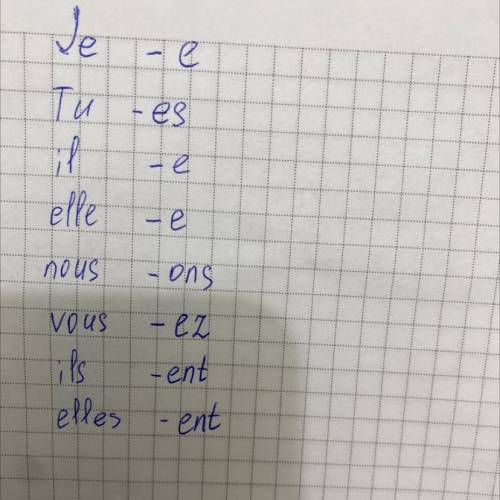 Je - e
Tu - es
il - e
elle - e
nous - ons
vous - ez
ils - ent
elles - ent